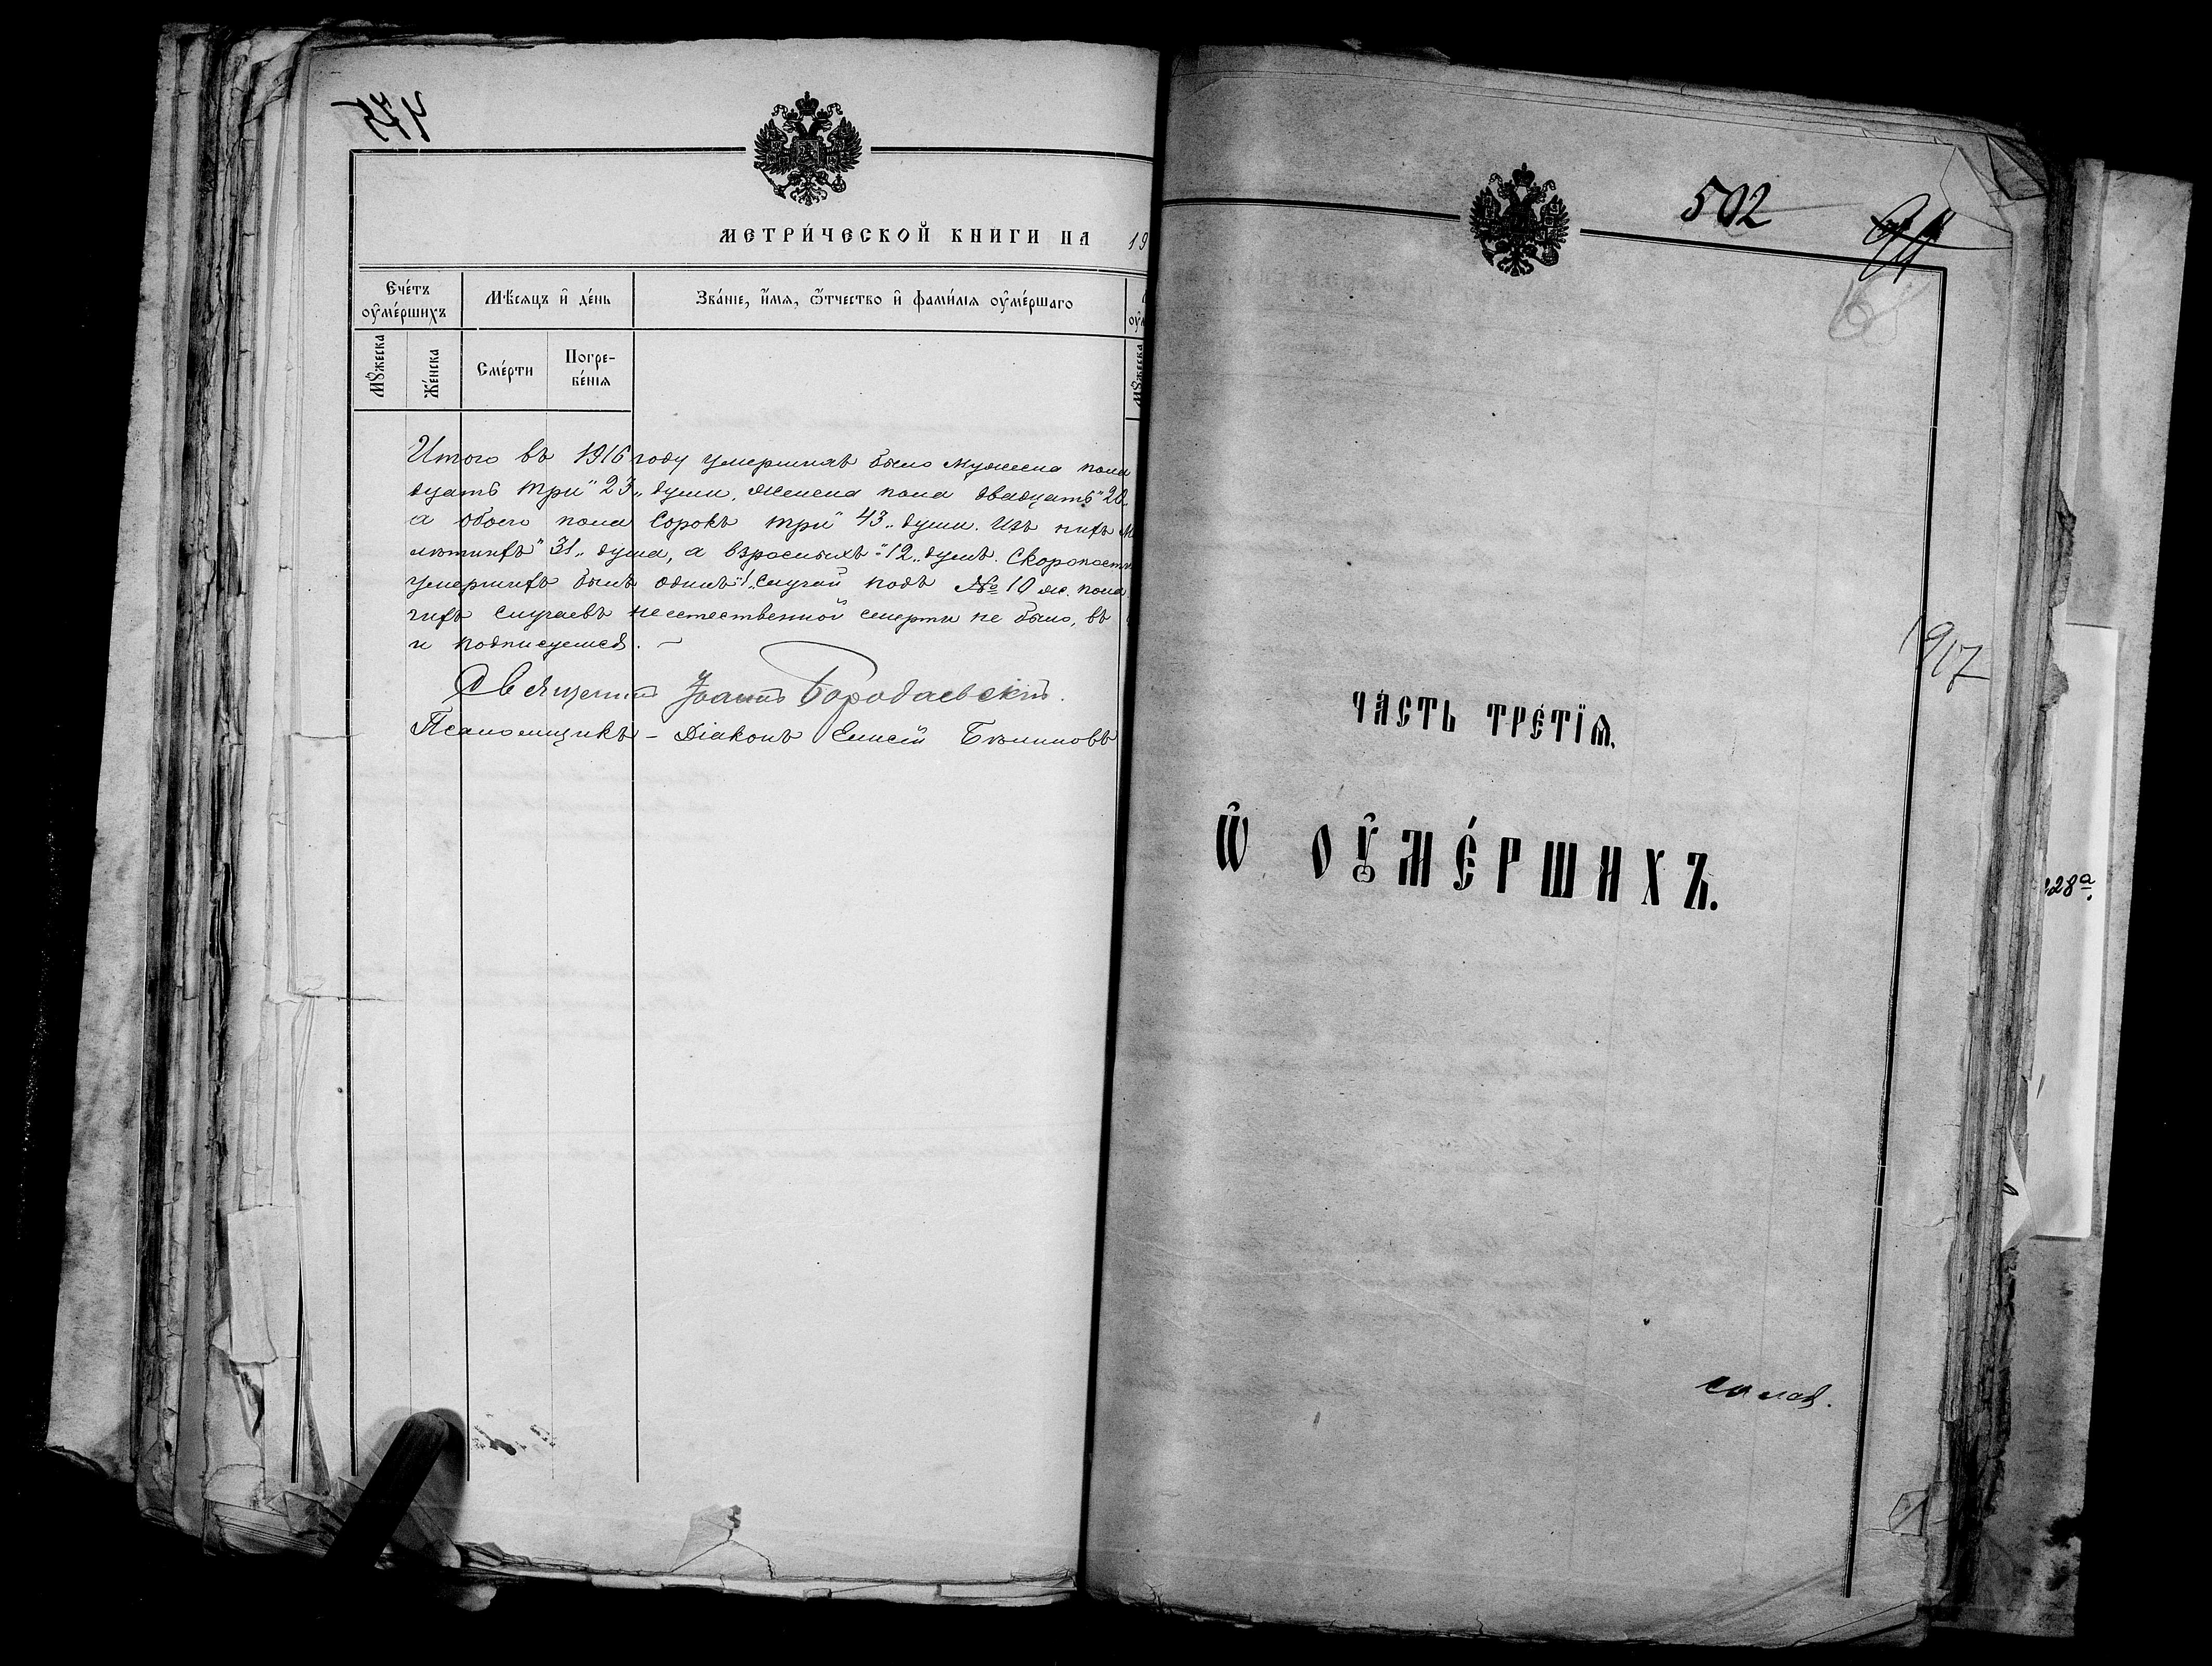 МЕТРИ́ЧЕСКОЙ КНИГИ НА 19
Счétъ оу҆мéршихъ
Мѣ́сяцъ и҆ дéнь
Звáнїе, и҆́мя, ѿ́чество и҆ фами́лїя оу҆мéршаго
Мꙋ́жеска
Жéнска
Смéрти
Погребéнїя
Мꙋ́жеска
Итого въ 1916 году умершихъ было мужеска пола
дцать три "23" души, женска пола двадцать "20
а обоего пола сорокъ три "43" души. Изъ нихъ м
лѣтнихъ "31" душа, а взрослыхъ "12" душъ. Скоропост
умершихъ былъ одинъ "1" случай подъ № 10 ж. пола.
гихъ случаевъ неестественной смерти не было, въ
и подписуемся. –
Священникъ Іоаннъ Бородаевскій.
Псаломщикъ – Діаконъ Елисей
502
1917
ЧА́СТЬ ТРЕ́ТЇѦ.
Ѽ ОУ҆МЕ́РШИХЪ.
28а.